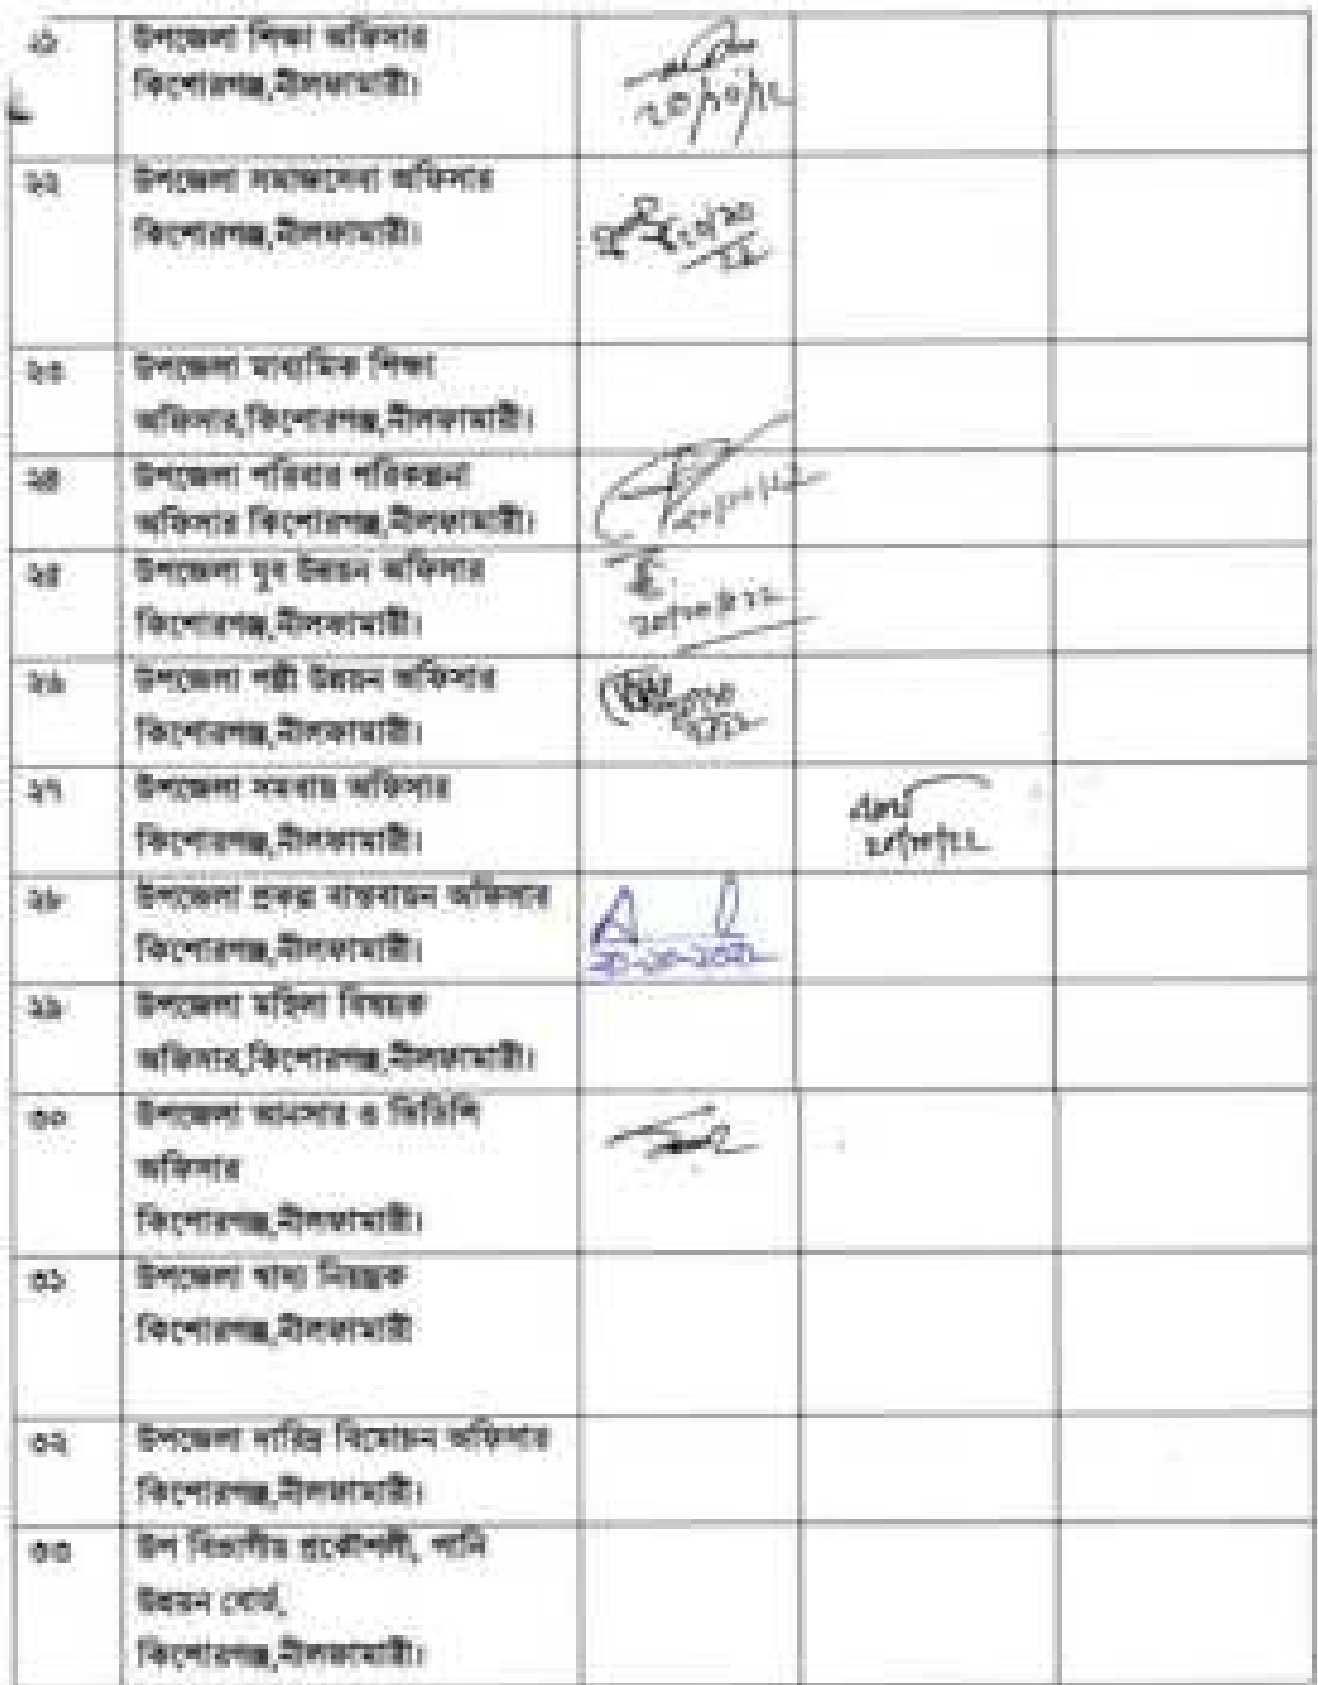 উপজেলা শিক্ষা অফিসার
কিশোরগঞ্জ,নীলফামারী।
২০/১০/২২
২২
উপজেলা সমাজসেবা অফিসার
কিশোরগঞ্জ,নীলফামারী।
২৩
উপজেলা মাধ্যমিক শিক্ষা
অফিসার,কিশোরগঞ্জ,নীলফামারী।
২৪
উপজেলা পরিবার পরিকল্পনা
অফিসার কিশোরগঞ্জ,নীলফামারী।
২৫
উপজেলা যুব উন্নয়ন অফিসার
কিশোরগঞ্জ,নীলফামারী।
২৬
উপজেলা পল্লী উন্নয়ন অফিসার
কিশোরগঞ্জ,নীলফামারী।
২৭
উপজেলা সমবায় অফিসার
কিশোরগঞ্জ,নীলফামারী।
২০/১০/২২
২৮
উপজেলা প্রকল্প বাস্তবায়ন অফিসার
কিশোরগঞ্জ,নীলফামারী।
২০-১০-২০২২
২৯
উপজেলা মহিলা বিষয়ক
অফিসার,কিশোরগঞ্জ,নীলফামারী।
৩০
উপজেলা আনসার ও ভিডিপি
অফিসার
কিশোরগঞ্জ,নীলফামারী।
৩১
উপজেলা খাদ্য নিয়ন্ত্রক
কিশোরগঞ্জ,নীলফামারী
৩২
উপজেলা দারিদ্র বিমোচন অফিসার
কিশোরগঞ্জ,নীলফামারী।
৩৩
উপ বিভাগীয় প্রকৌশলী, পানি
উন্নয়ন বোর্ড,
কিশোরগঞ্জ,নীলফামারী।